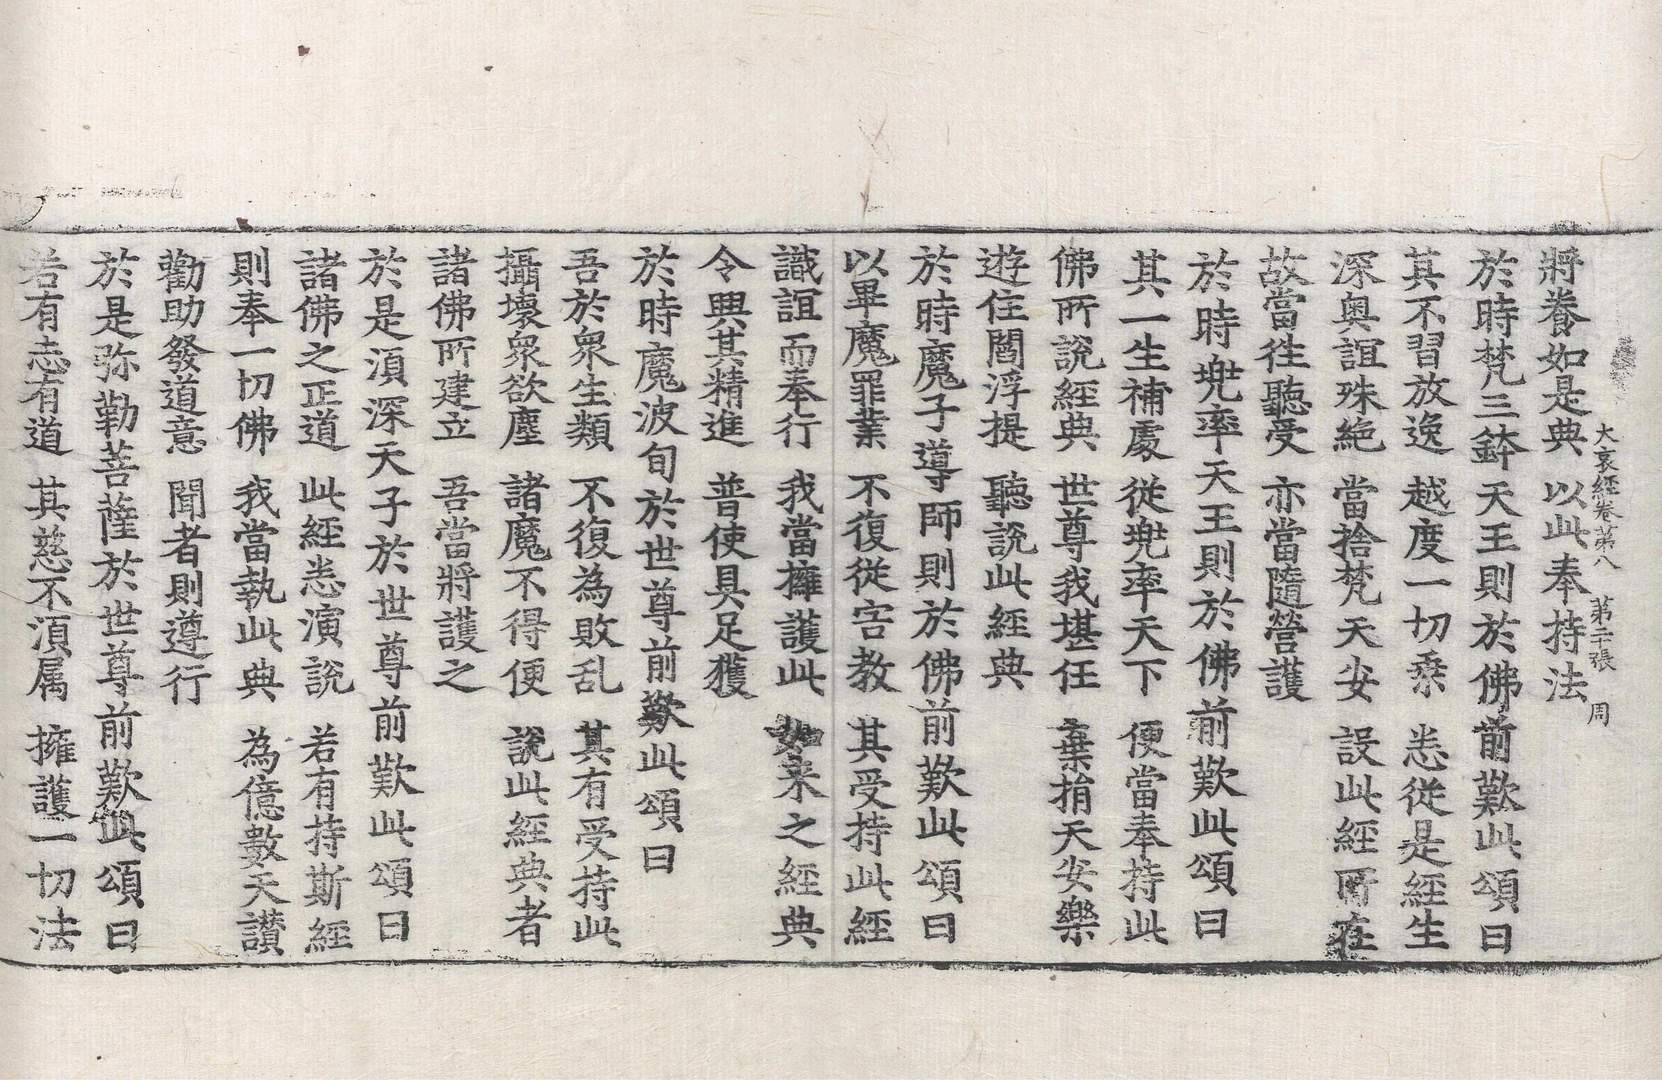 大哀經卷第八　第二十張　周
將養如是典　以此奉持法
於時梵三鉢天王則於佛前歎此頌曰
其不習放逸　越度一切乘　悉從是經生
深奧誼殊絶　當捨梵天安　設此經所在
故當往聽受　亦當隨營護
於時兠率天王則於佛前歎此頌曰
其一生補處　從兠率天下　便當奉持此
佛所說經典　世尊我堪任　棄捐天安樂
遊住閻浮提　聽說此經典
於時魔子導師則於佛前歎此頌曰
以畢魔罪業　不復從害教　其受持此經
識誼而奉行　我當擁護此　如来之經典
令興其精進　普使具足獲
於時魔波旬於世尊前歎此頌曰
吾於衆生類　不復為敗乱　其有受持此
攝壞衆欲塵　諸魔不得便　說此經典者
諸佛所建立　吾當將護之
於是湏深天子於世尊前歎此頌曰
諸佛之正道　此經悉演說　若有持斯經
則奉一切佛　我當執此典　為億數天讃
勸助發道意　聞者則遵行
於是弥勒菩薩於世尊前歎此頌曰
若有志有道　其慈不湏属　擁護一切法